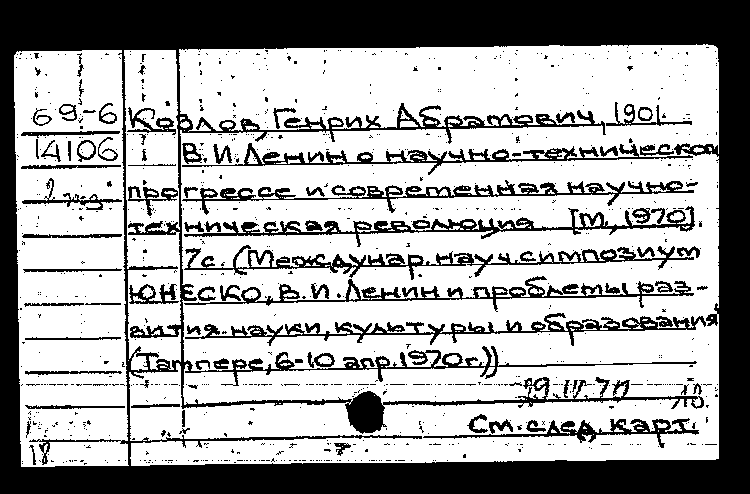 69-6 Козлов, Генрих Абрамович, 1901-
14106 В.И. Ленин о научно-техническом
2 экз. прогрессе и современная научно-
техническая революция. [М., 1970].
7с. (Междунар. науч. симпозиум
ЮНЕСКО, В.И. Ленин и проблемы раз-
вития науки, культуры и образования
(Тампере, 6-10 апр. 1970г.))
См. след. карт.
18